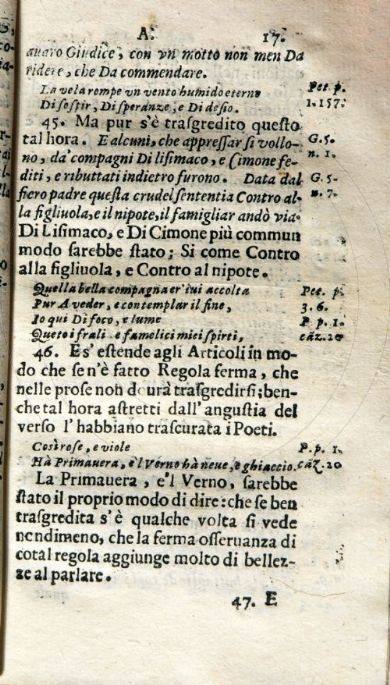 A. 17.
auaro Giudice, con vn motto non men Da
ridere, che Da commendare.
La vela rompe vn vento humido eterno Pet. p.
Di sospir, Di speranze, e Di desio. 1. 157.
45. Ma pur s'è trasgredito questo
tal hora. E alcuni, che appressar si vollo- G. 5.
no, da' compagni Di Lisimaco, e Cimone fe- n. 1.
diti, e ributtati indietro furono. Data dal G. 5.
fiero padre questa crudel sententia Contro al- n. 7.
la figliuola, e il nipote, il famigliar andò via.
Di Lisimaco, e Di Cimone più commun
modo sarebbe stato; Si come Contro
alla figliuola, e Contro al nipote.
Quella bella compagna er' iui accolta Pet. p.
Pur A veder, e contemplar il fine, 3. 6.
Io qui Di foco, e lume P. p. 1.
Queto i frali e famelici miei spirti, cāz. 20
46. Es' estende agli Articoli in mo-
do che se n'è fatto Regola ferma, che
nelle prose non dourà trasgredirsi; ben-
che tal hora astretti dall'angustia del
verso l'habbiano trascurata i Poeti.
Così rose, e viole P. p. 1.
Hà Primauera, e'l Verno hà neue, e ghiaccio. cāz. 20
La Primauera, e'l Verno, sarebbe
stato il proprio modo di dire: che se ben
trasgredita s'è qualche volta si vede
nendimeno, che la ferma osseruanza di
cotal regola aggiunge molto di bellez-
ze al parlare.
47. E